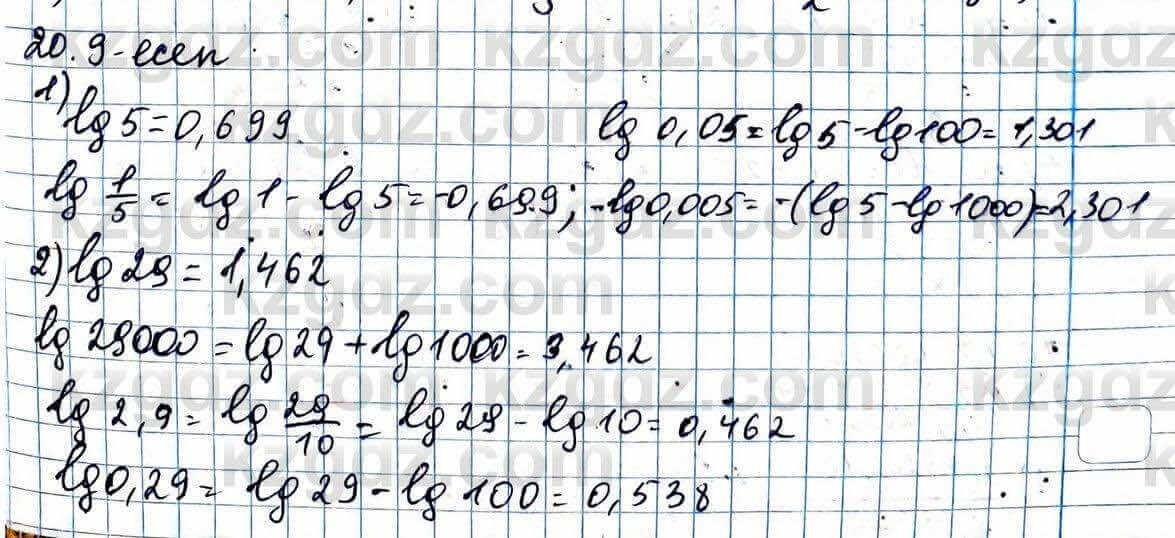 20.9-есеп
1) lg 5 = 0,699. lg 0,05 = lg 5 - lg 100 = 1,301
lg 1/5 = lg 1 - lg 5 = -0,699; -lg 0,005 = -(lg 5 - lg 1000) = 2,301
2) lg 29 = 1,462
lg 29000 = lg 29 + lg 1000 = 3,462
lg 2,9 = lg 29/10 = lg 29 - lg 10 = 0,462
lg 0,29 = lg 29 - lg 100 = 0,538
kzgdz.com